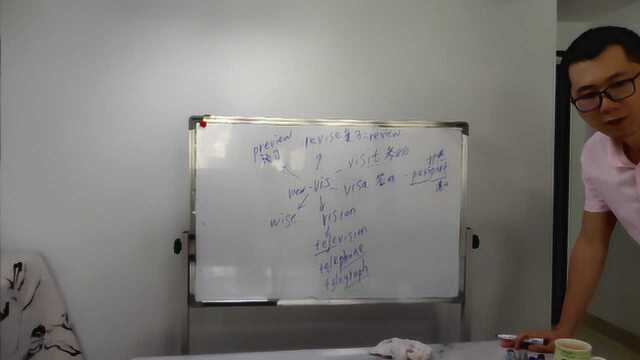 preview revise复习=review
预习
visit 参观
view-vis
visa 签证
passport
wise
vision
television
telephone
telegraph